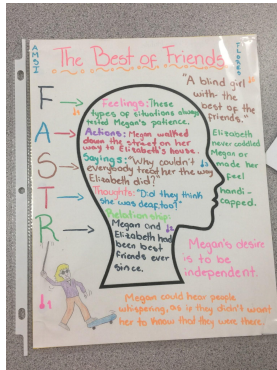 AMSTI
The Best of Friends
F
Feelings: These
types of situations always
tested Megan's patience.
A
Actions: Megan walked
down the street on her
way to Elizabeth's house.
S
Sayings: "Why couldn't
everybody treat her the way
Elizabeth did?"
T
Thoughts: "Did they think
she was deaf, too?"
R
Relationship:
Megan and
Elizabeth had
been best
Friends ever
since.
"A blind girl
with the
best of the
friends."
Elizabeth
never coddled
Megan or
made her
feel
handi-
capped.
Megan's desire
is to be
independent.
Megan could hear people
whispering, as if they didn't want
her to know that they were there.